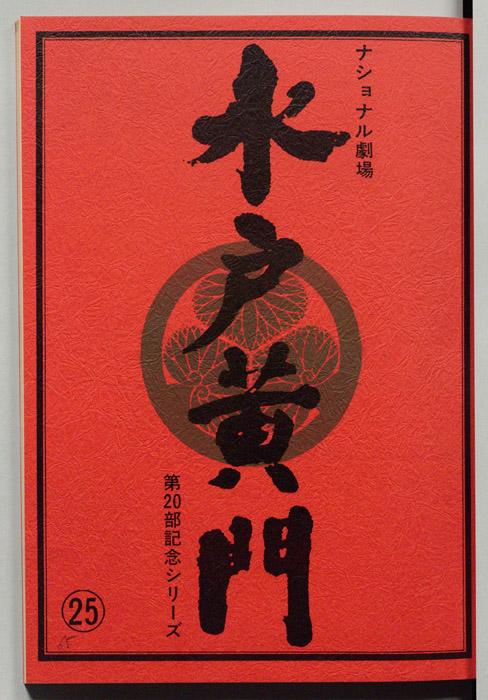 ナショナル劇場
水戸黄門
第20部記念シリーズ
25